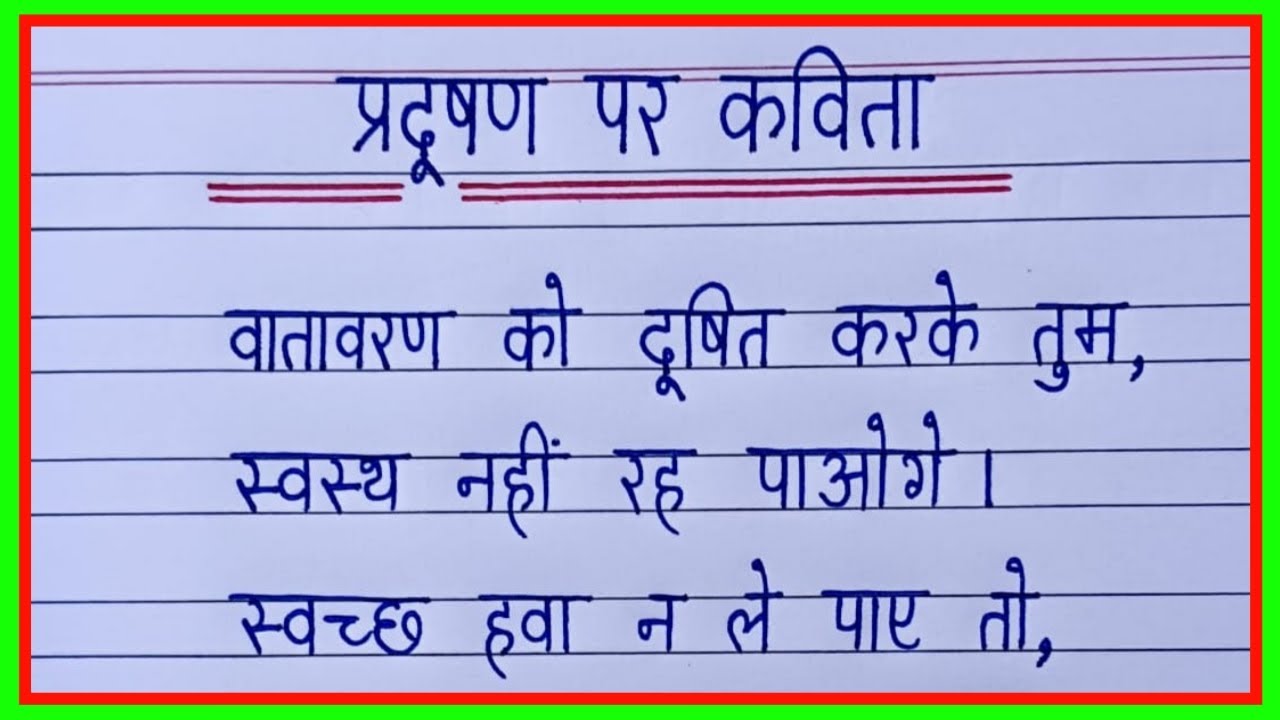 प्रदूषण पर कविता
वातावरण को दूषित करके तुम,
स्वस्थ नहीं रह पाओगे।
स्वच्छ हवा न ले पाए तो,